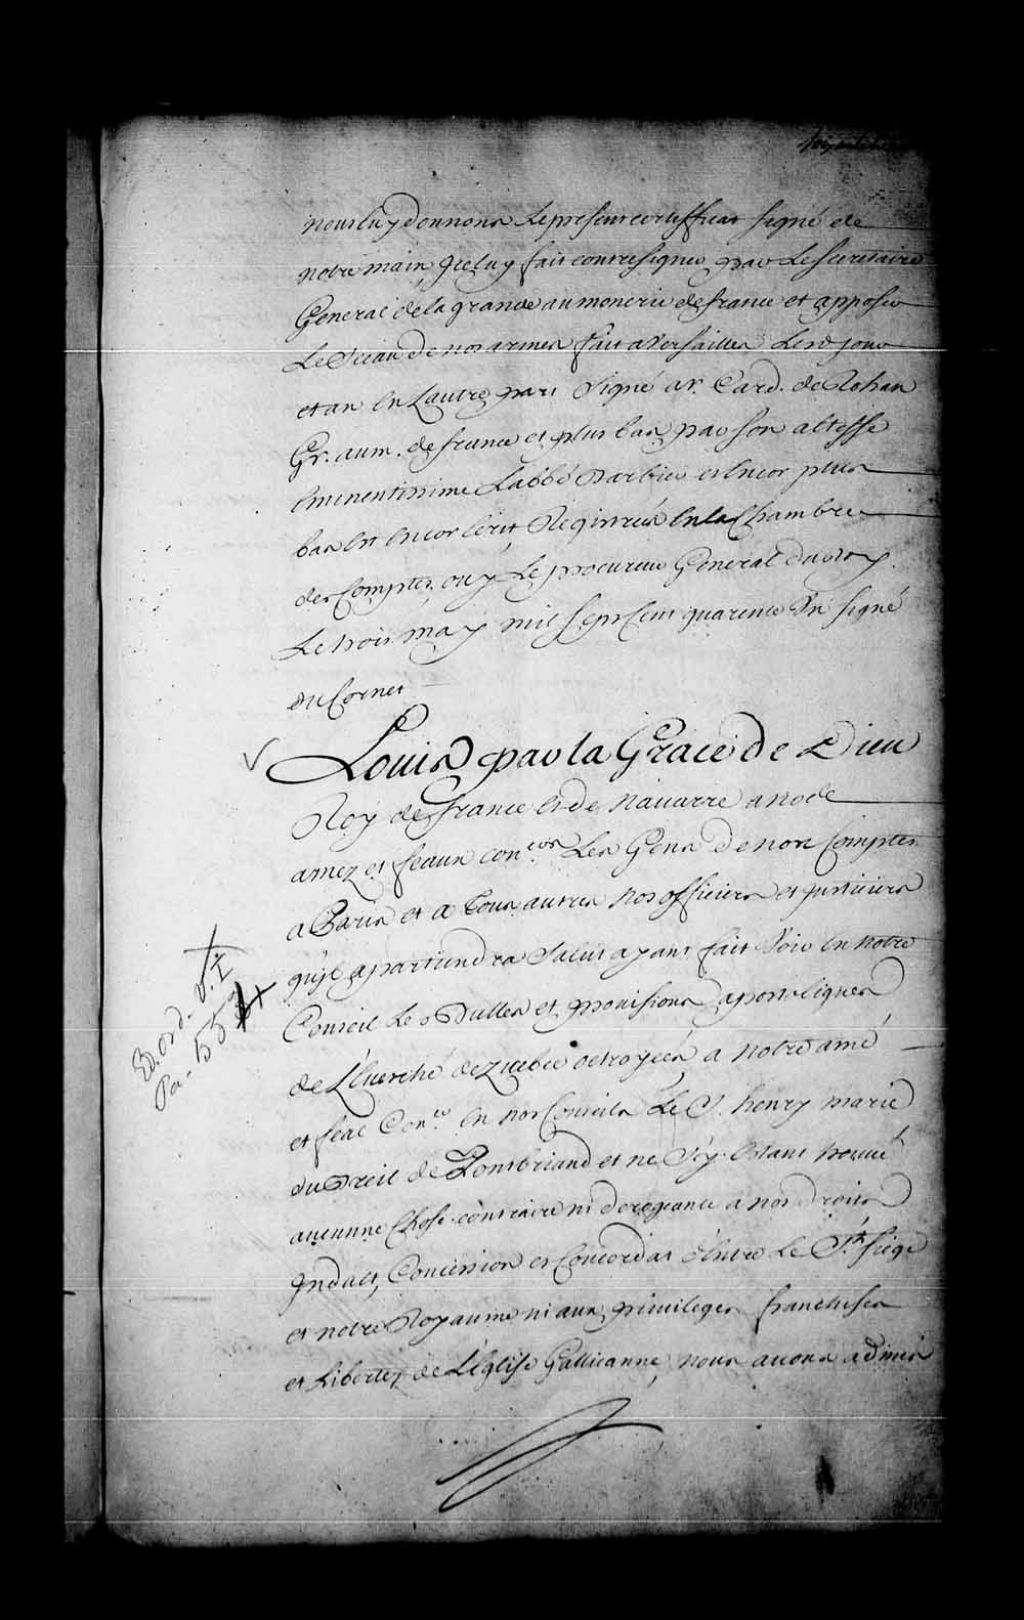 nous luy donnons Le present certifficat signé de
notre main, Jceluy fait contresigner par Le Secretaire
General de la grande aumonerie de france et apposer
Le Sceau de nos armes fait a Versailles Les d. jour
et an En Lautre part Signé ar. Card. de Rohan
Gr. aum. de france et plus bas, par son altesse
Eminentissime Labbé Barbier et Encor plus
bas Est Encor Ecrit Registrées En la Chambre
des Comptes, ouy Le procureur General du roy.
Le trois may mil sept Cent quarente Vn signé
du Cornet
Louis par la Grace de Dieu
Roy de france et de Nauarre a nos
amez et feaux con.ers Les Gens de nos Comptes
a Paris et a Tous autres nos officiers et justiciers
qu'jl apartiendra Salut ayant fait Voir En notre
Conseil Les Bulles et prouisions apostoliques
de L'Euesché de Quebec octroyées a notre amé
et feal Con.er En nos Conseils Le S. henry marie
du Breil de Pontbriand et ne S'y Estant trouué
aucunne Chose contraire ni derogeante a nos droits
Jndult, Concession et Concordat d'Entre Le S.t siege
et notre Royaume ni aux priuileges franchises
et Libertez de L'Eglise Gallicanne, nous auons admis
Ed. ord. V. I
Pa - 55